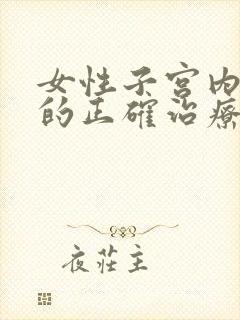 女性子宫内
的正確治療
夜莊主